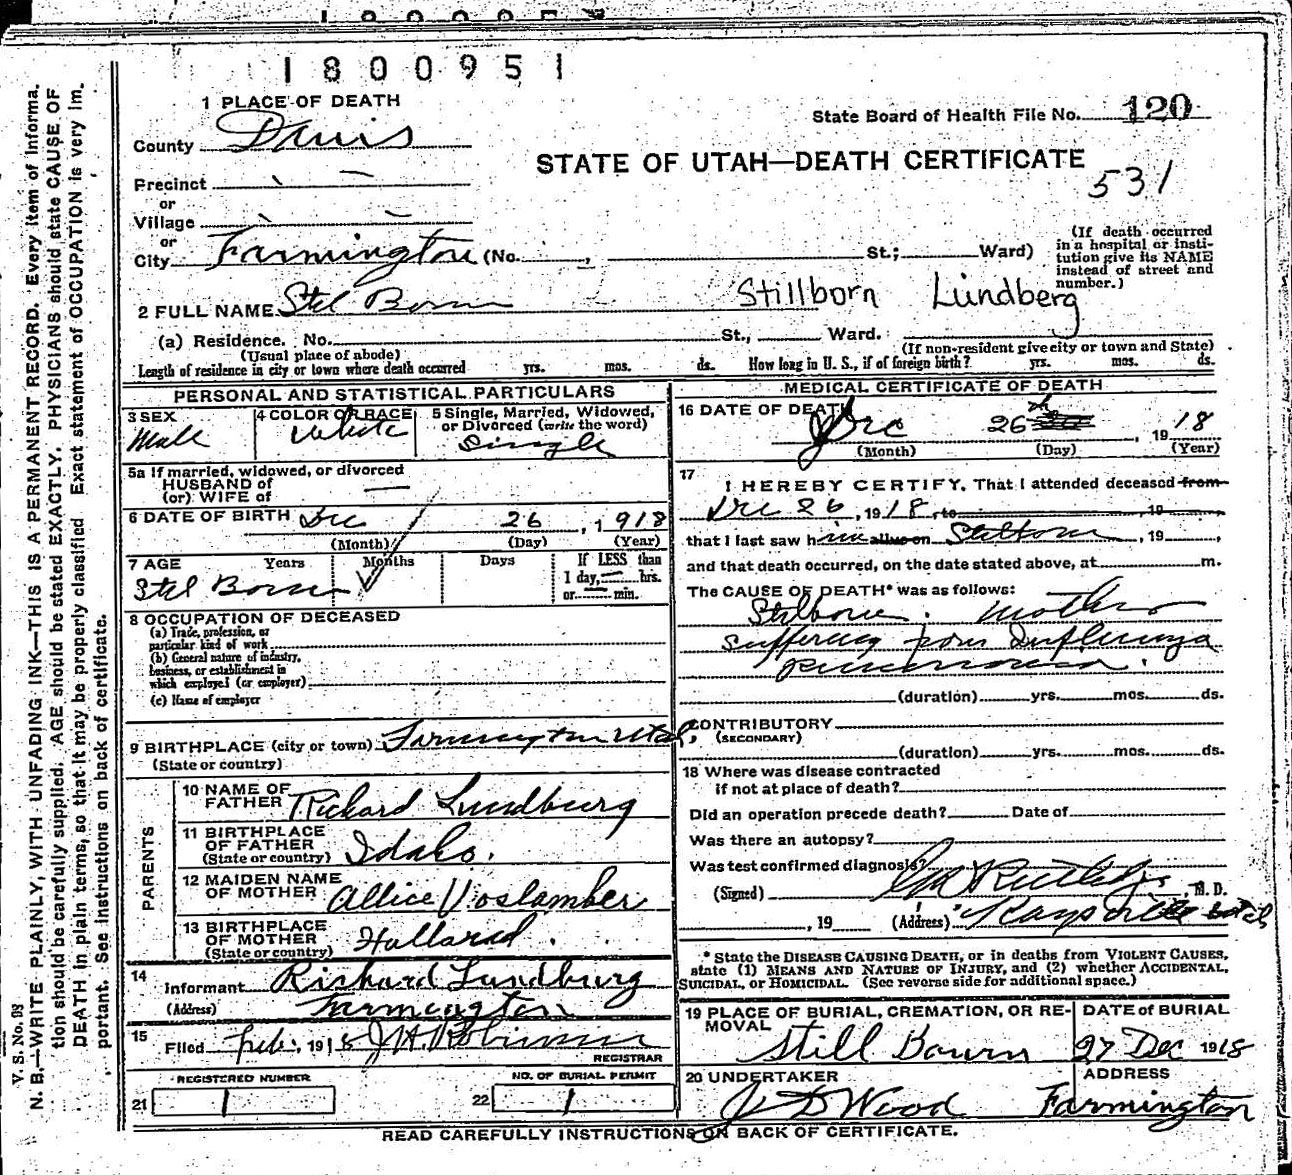 1800951
1 PLACE OF DEATH
County Davis
State Board of Health File No. 120
STATE OF UTAH—DEATH CERTIFICATE
531
Precinct
or
Village
or
City Farmington (No. , St.; Ward)
(If death occurred
in a hospital or insti-
tution give its NAME
instead of street and
number.)
2 FULL NAME Stel Born Stillborn Lundberg
(a) Residence. No. St., Ward.
(Usual place of abode) (If non-resident give city or town and State)
Length of residence in city or town where death occurred yrs. mos. ds. How long in U. S., if of foreign birth? yrs. mos. ds.
PERSONAL AND STATISTICAL PARTICULARS
3 SEX 4 COLOR OR RACE 5 Single, Married, Widowed,
or Divorced (write the word)
Male White Single
5a If married, widowed, or divorced
HUSBAND of
(or) WIFE of
6 DATE OF BIRTH Dec 26, 1918
(Month) (Day) (Year)
7 AGE Years Months Days If LESS than
1 day, hrs.
or min.
Stel Born
8 OCCUPATION OF DECEASED
(a) Trade, profession, or
particular kind of work
(b) General nature of industry,
business, or establishment in
which employed (or employer)
(c) Name of employer
9 BIRTHPLACE (city or town) Farmington Utah
(State or country)
PARENTS
10 NAME OF
FATHER Richard Lundburg
11 BIRTHPLACE
OF FATHER
(State or country) Idaho.
12 MAIDEN NAME
OF MOTHER Allice Voslamber
13 BIRTHPLACE
OF MOTHER
(State or country) Holland.
14
Informant Richard Lundburg
(Address) Farmington
15
Filed Feb., 191 J H Robinson
REGISTRAR
REGISTERED NUMBER NO. OF BURIAL PERMIT
21 1 22 1
MEDICAL CERTIFICATE OF DEATH
16 DATE OF DEATH
Dec 26th, 1918
(Month) (Day) (Year)
17
I HEREBY CERTIFY, That I attended deceased from
Dec 26, 1918, to , 19
that I last saw him alive on Stilborn, 19 ,
and that death occurred, on the date stated above, at m.
The CAUSE OF DEATH* was as follows:
Stilborn. Mother
suffering from Influenza
pneumonia.
(duration) yrs. mos. ds.
CONTRIBUTORY
(SECONDARY)
(duration) yrs. mos. ds.
18 Where was disease contracted
if not at place of death?
Did an operation precede death? Date of
Was there an autopsy?
Was test confirmed diagnosis?
(Signed) Rutledge, M. D.
, 19 (Address) Kaysville Utah
* State the DISEASE CAUSING DEATH, or in deaths from VIOLENT CAUSES,
state (1) MEANS AND NATURE OF INJURY, and (2) whether ACCIDENTAL,
SUICIDAL, or HOMICIDAL. (See reverse side for additional space.)
19 PLACE OF BURIAL, CREMATION, OR RE- DATE OF BURIAL
MOVAL
Still Bourn 27 Dec 1918
20 UNDERTAKER ADDRESS
J D Wood Farmington
READ CAREFULLY INSTRUCTIONS ON BACK OF CERTIFICATE.
V. S. No. 98
N. B.—WRITE PLAINLY, WITH UNFADING INK—THIS IS A PERMANENT RECORD. Every item of informa-
tion should be carefully supplied. AGE should be stated EXACTLY. PHYSICIANS should state CAUSE OF
DEATH in plain terms, so that it may be properly classified. Exact statement of OCCUPATION is very im-
portant. See instructions on back of certificate.